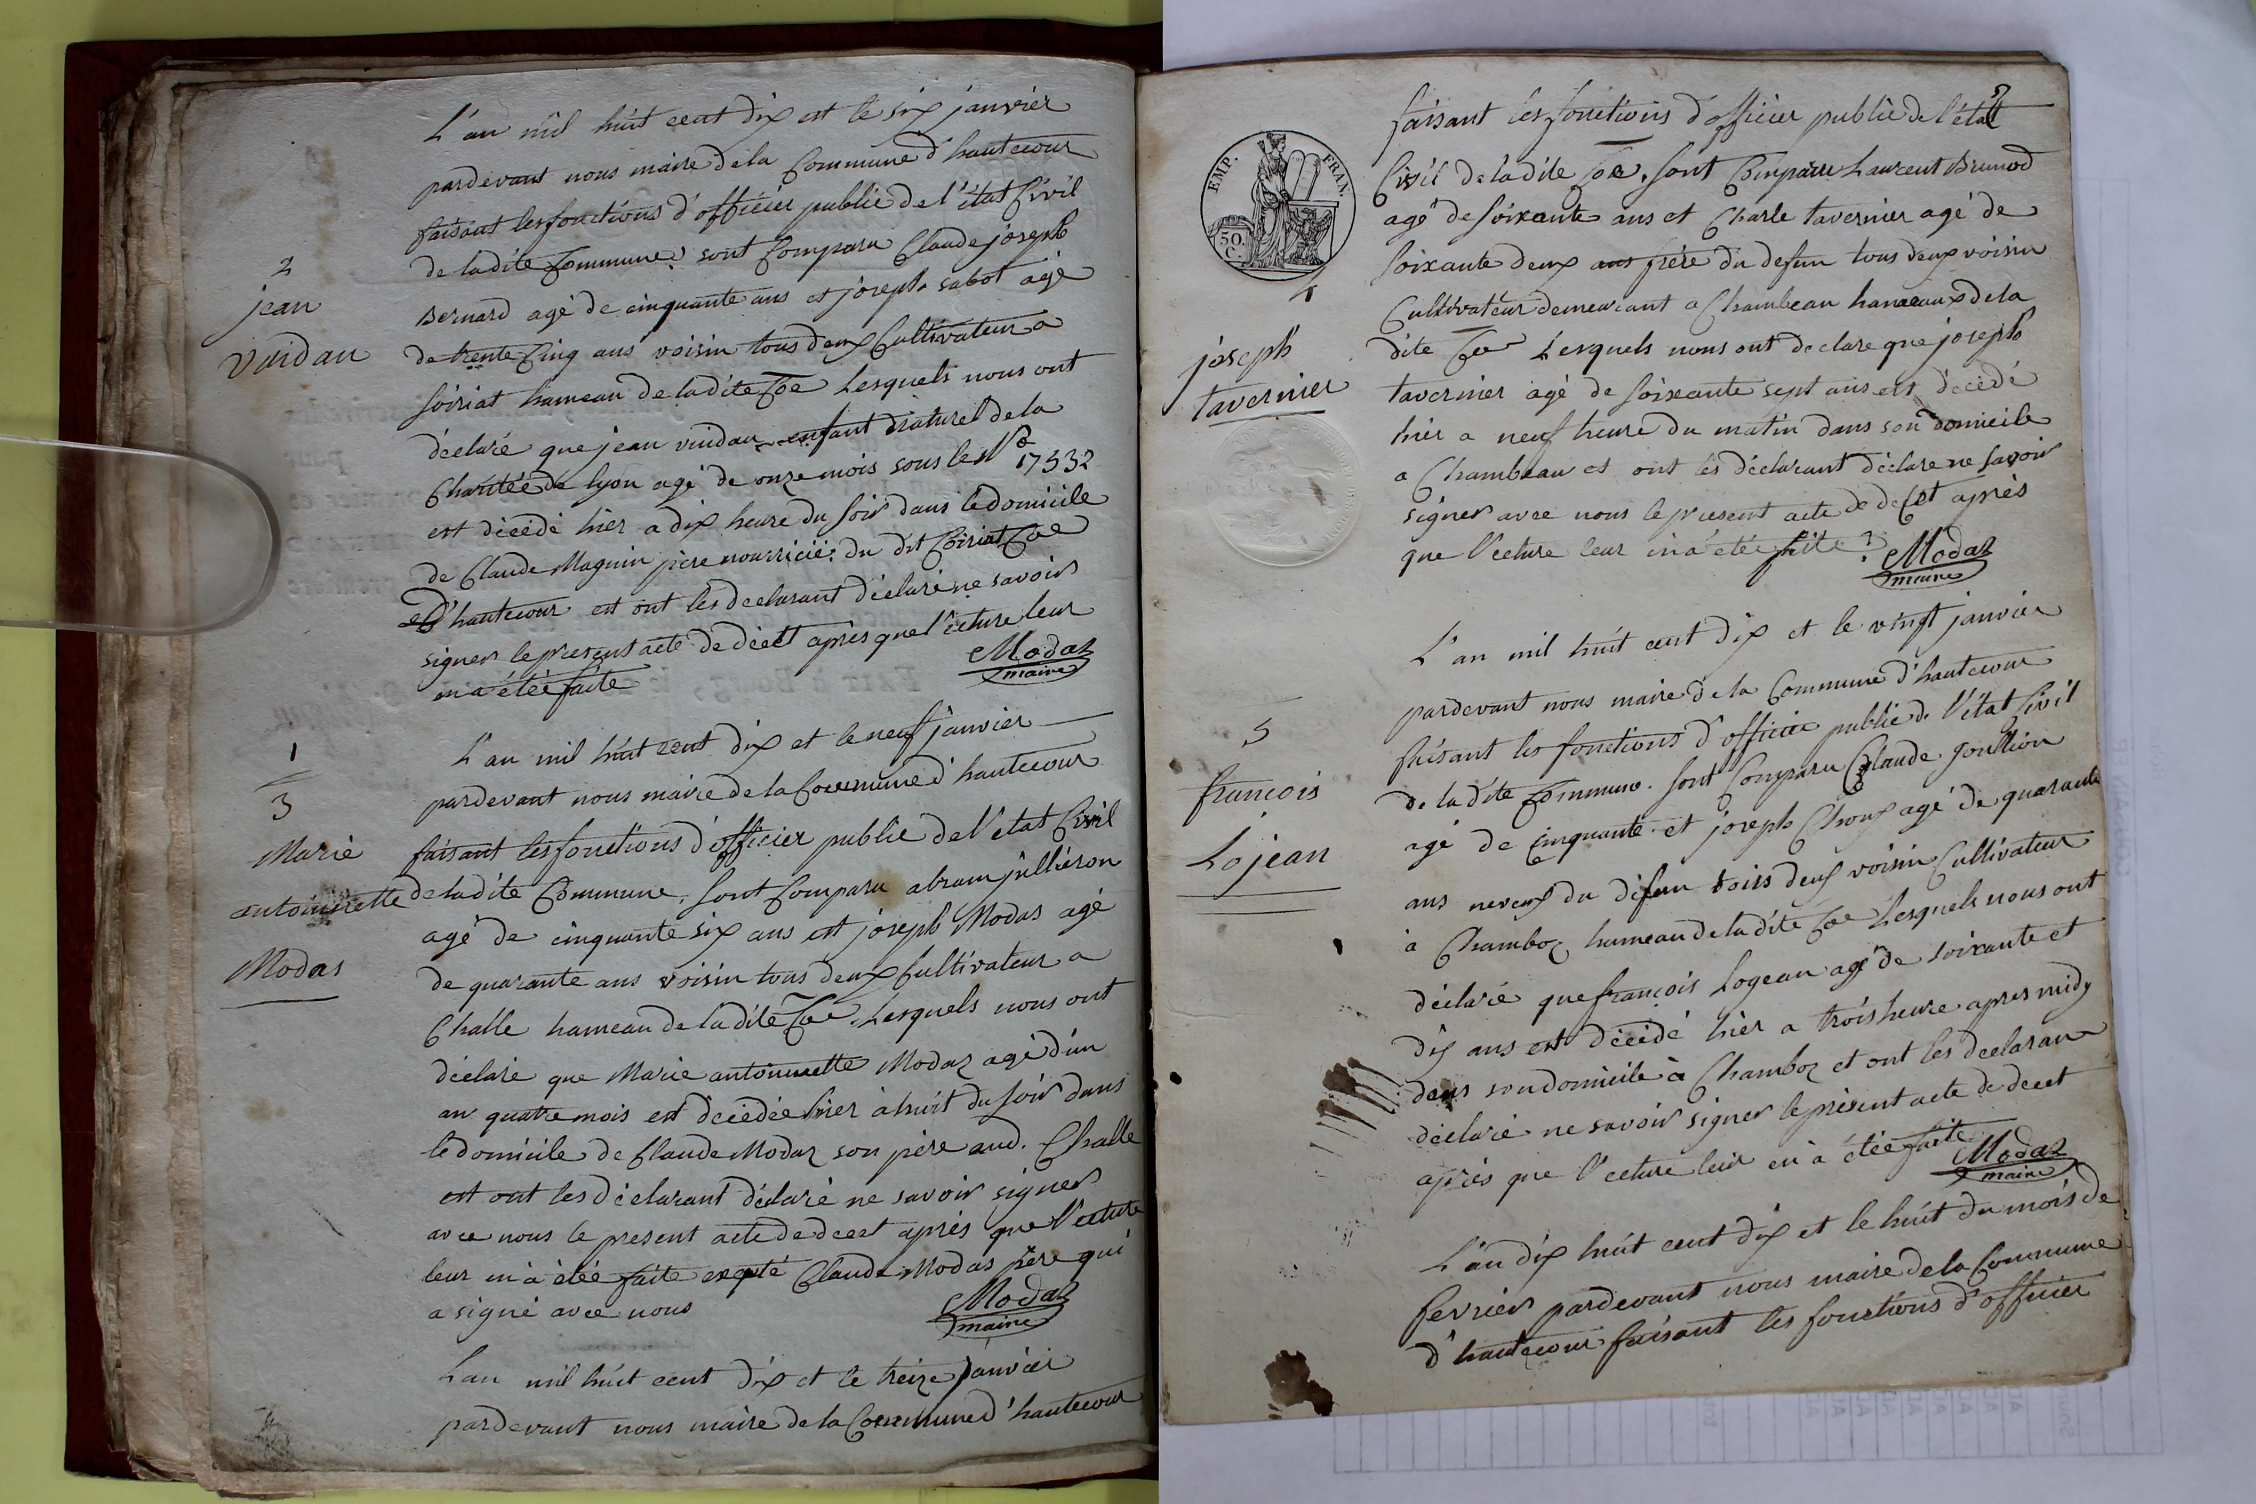 L'an mil huit cent dix et le six janvier
pardevant nous maire de la Commune d'hautecour
faisant les fonctions d'officier public de l'état Civil
de ladite Commune, sont Comparu Claude joseph
Bernard agé de cinquante ans et joseph sabot agé
de trente Cinq ans voisin tous deux Cultivateur a
Soiriat hameau de ladite Coe Lesquels nous ont
déclaré que jean vuidau enfant naturel de la
Charitée de lyon agé de onze mois sous le No 17532
est décédé hier a dix heure du soir dans le domicile
de Claude Magnin père nourricié du dit Coiriat Coe
D'hautecour est ont les declarant déclaré ne savoir
signer le present acte de décêt après que l'ecture leur
en a étée faite
Modas
maire
2
jean
vuidau
L'an mil huit cent dix et le neuf janvier
pardevant nous maire de la Commune d'hautecour
faisant les fonctions d'officier public de l'état Civil
de ladite Commune. sont Comparu abram jullieron
agé de cinquante six ans est joseph Modas agé
de quarante ans voisin tous deux Cultivateur a
Challe hameau de ladite Coe Lesquels nous ont
déclaré que Marie antoinette Modas agé d'un
an quatre mois est décédée hier à huit du soir dans
le domicile de Claude Modas son père aud. Challe
est ont les déclarant déclaré ne savoir signer
avec nous le present acte de decet après que l'ecture
leur en à étée faite excepté Claude Modas père qui
a signé avec nous
Modas
maire
1
3
Marie
antoinette
Modas
Lan mil huit cent dix et le treize janvier
pardevant nous maire de la Commune d'hautecour
EMP. FRAN.
50. C.
faisant les fonctions d'officier public de l'état
Civil de ladite Coe. sont Comparu Laurent Brunod
agé de soixante ans et Charle tavernier agé de
soixante deux ans frère du defun tous deux voisin
Cultivateur demeurant a Chambeau hameaux de la
dite Coe Lesquels nous ont declare que joseph
tavernier agé de soixante sept ans est décédé
hier a neuf heure du matin dans son domicile
a Chambeau et ont les déclarant déclare ne savoir
signer avec nous le present acte de decet après
que l'ecture leur en a étée faite
Modas
maire
4
joseph
tavernier
L'an mil huit cent dix et le vingt janvier
pardevant nous maire de la Commune d'hautecour
faisant les fonctions d'officier public de l'état Civil
de la dite Commune. sont Comparu Claude
agé de Cinquante et joseph agé de quarante
ans neveux du défun tous deux voisin Cultivateur
à Chamboz hameau de la dite Coe Lesquels nous ont
déclaré que françois Logean agé de soixante et
dix ans est décédé hier a trois heure apres midy
dans son domicile à Chamboz et ont les declaran
déclaré ne savoir signer le présent acte de decet
après que l'ecture leur en à étée faite
Modas
maire
5
francois
Lojean
L'an dix huit cent dix et le huit du mois de
fevrier pardevant nous maire de la Commune
d'hautecour faisant les fonctions d'officier